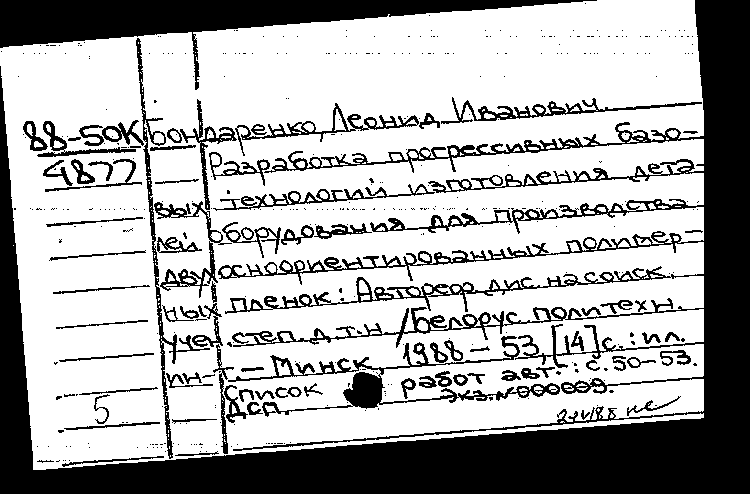 88-50К Бондаренко, Леонид Иванович.
4877 Разработка прогрессивных базо-
вых технологий изготовления дета-
лей оборудования для производства
двухосноориентированных полимер-
ных пленок: Автореф. дис. на соиск.
учен. степ. д.т.н. /Белорус. политехн.
ин-т.– Минск, 1988 – 53, [14] с.: ил.
Список работ авт.: с. 50–53.
5 ДСП. Экз. №000009.